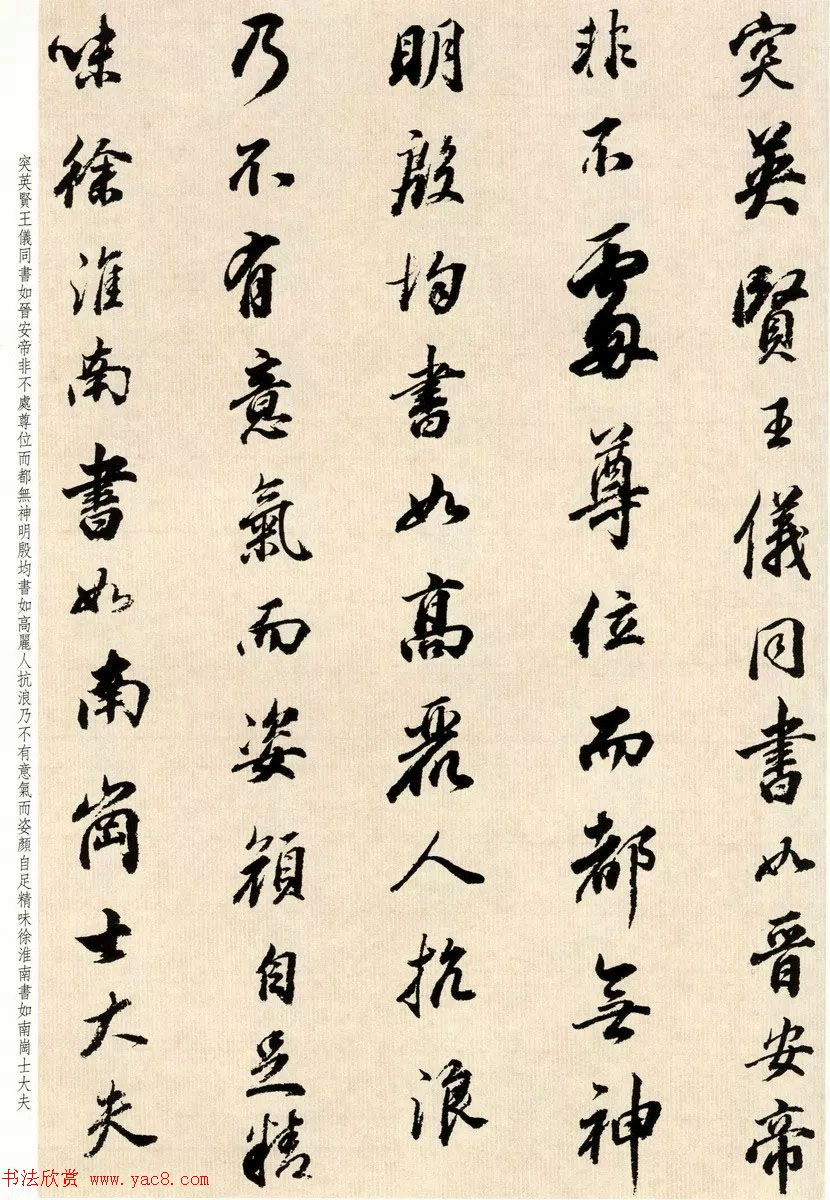 突英賢王儀同書如晉安帝
非不處尊位而都無神
明殷均書如高麗人抗浪
乃不有意氣而姿顏自足精
味徐淮南書如南崗士大夫
突英賢王儀同書如晉安帝非不處尊位而都無神明殷均書如高麗人抗浪乃不有意氣而姿顏自足精味徐淮南書如南崗士大夫
书法欣赏 www.yac8.com